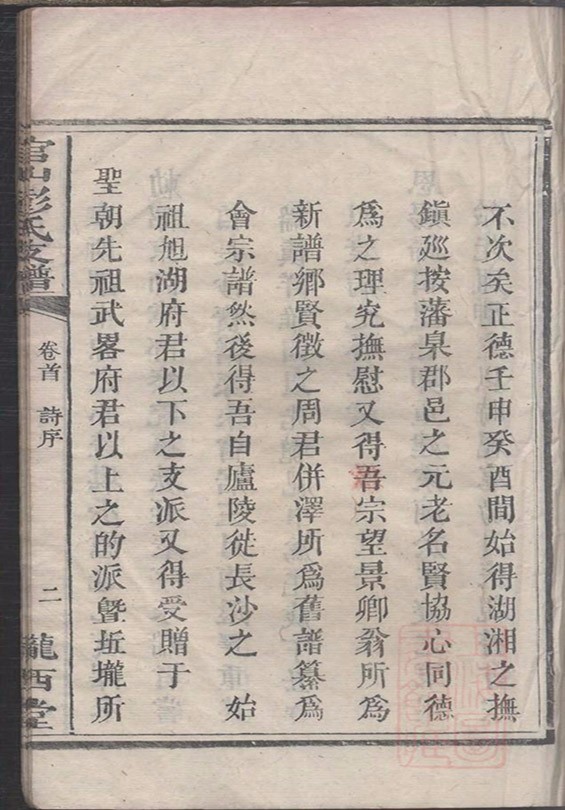 不次矣正德壬申癸酉間始得湖湘之撫
鎮廵按藩臬郡邑之元老名賢協心同德
爲之理究撫慰又得吾宗望景卿翁所爲
新譜鄉賢徵之周君併澤所爲舊譜纂爲
會宗譜然後得吾自廬陵徙長沙之 始
祖旭湖府君以下之支派又得受贈于
聖朝先祖武畧府君以上之的派曁坵壠所
官山彭氏支譜
卷首 詩序
二
隴西堂